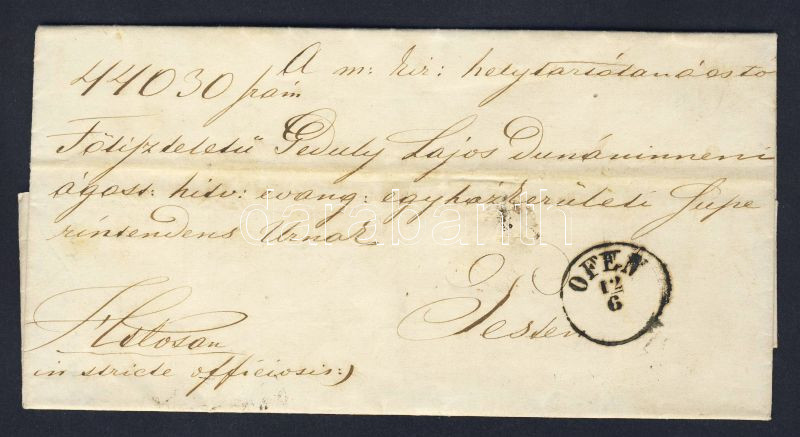 A m: kir: helytartótanácstó
44030 szám
Főtiszteletű Geduly Lajos Dunáninneni
ágost: hitv: evang: egyházkerületi Supe
rintendens Urnak
Pesten
OFEN
12
6
Htlosan
in stricte officiosis:)
darabanth